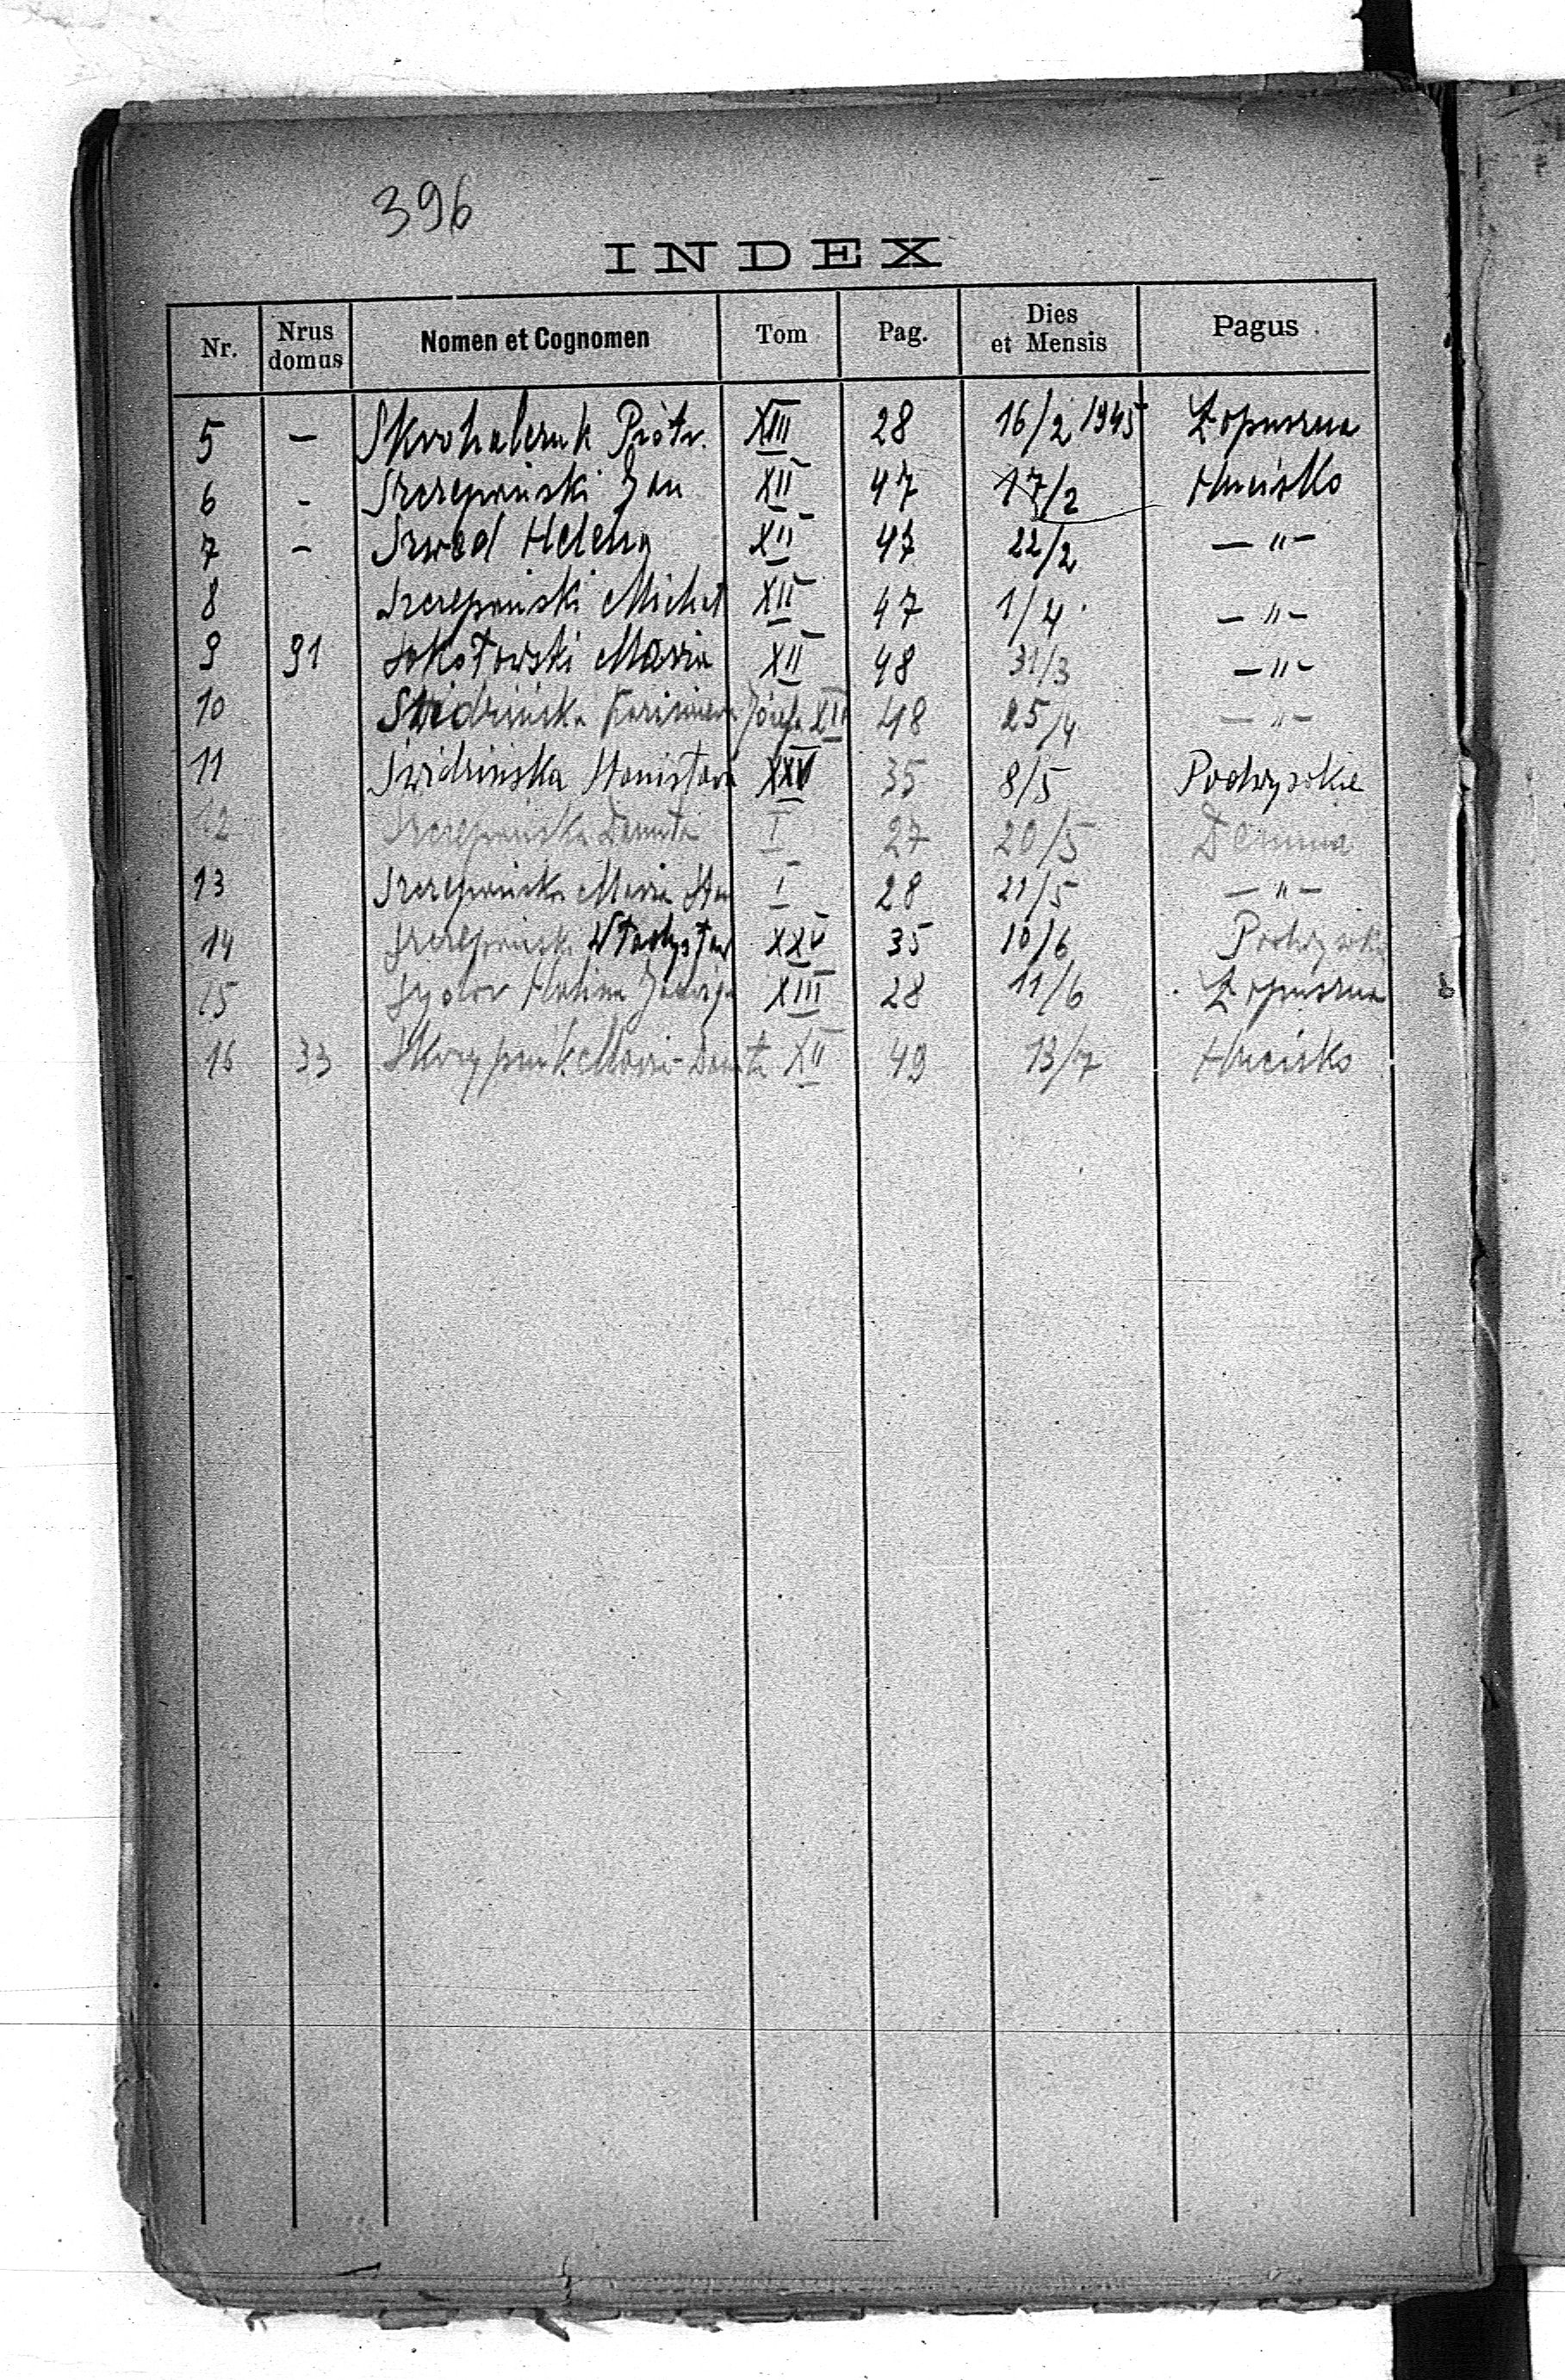 396
INDEX
Nr. Nrus domus Nomen et Cognomen Tom Pag. Dies et Mensis Pagus
5 — Skrohaleruk Piotr. XIII 28 16/2 1945 Łopuszna
6 - Szczepański Jan XII 47 17/2 Hucisko
7 - Szwed Helena XII 47 22/2 — " -
8 Szczepański Michał XII 47 1/4 - " -
9 91 Sokołowski Maria XII 48 31/3 - " -
10 Świdzińska Kazimiera Józefa XII 48 25/4 - " -
11 Świdzińska Stanisława XXV 35 8/5 Podwysokie
12 Szczepańska Danuta I 27 20/5 Demnia
13 Szczepańska Maria I 28 21/5 - " -
14 Szczepański Władysław XXV 35 10/6 Podwysokie
15 Sydor Halina Jadwiga XIII 28 11/6 Łopuszna
16 33 Skrypnik Maria-Danuta XII 49 13/7 Hucisko